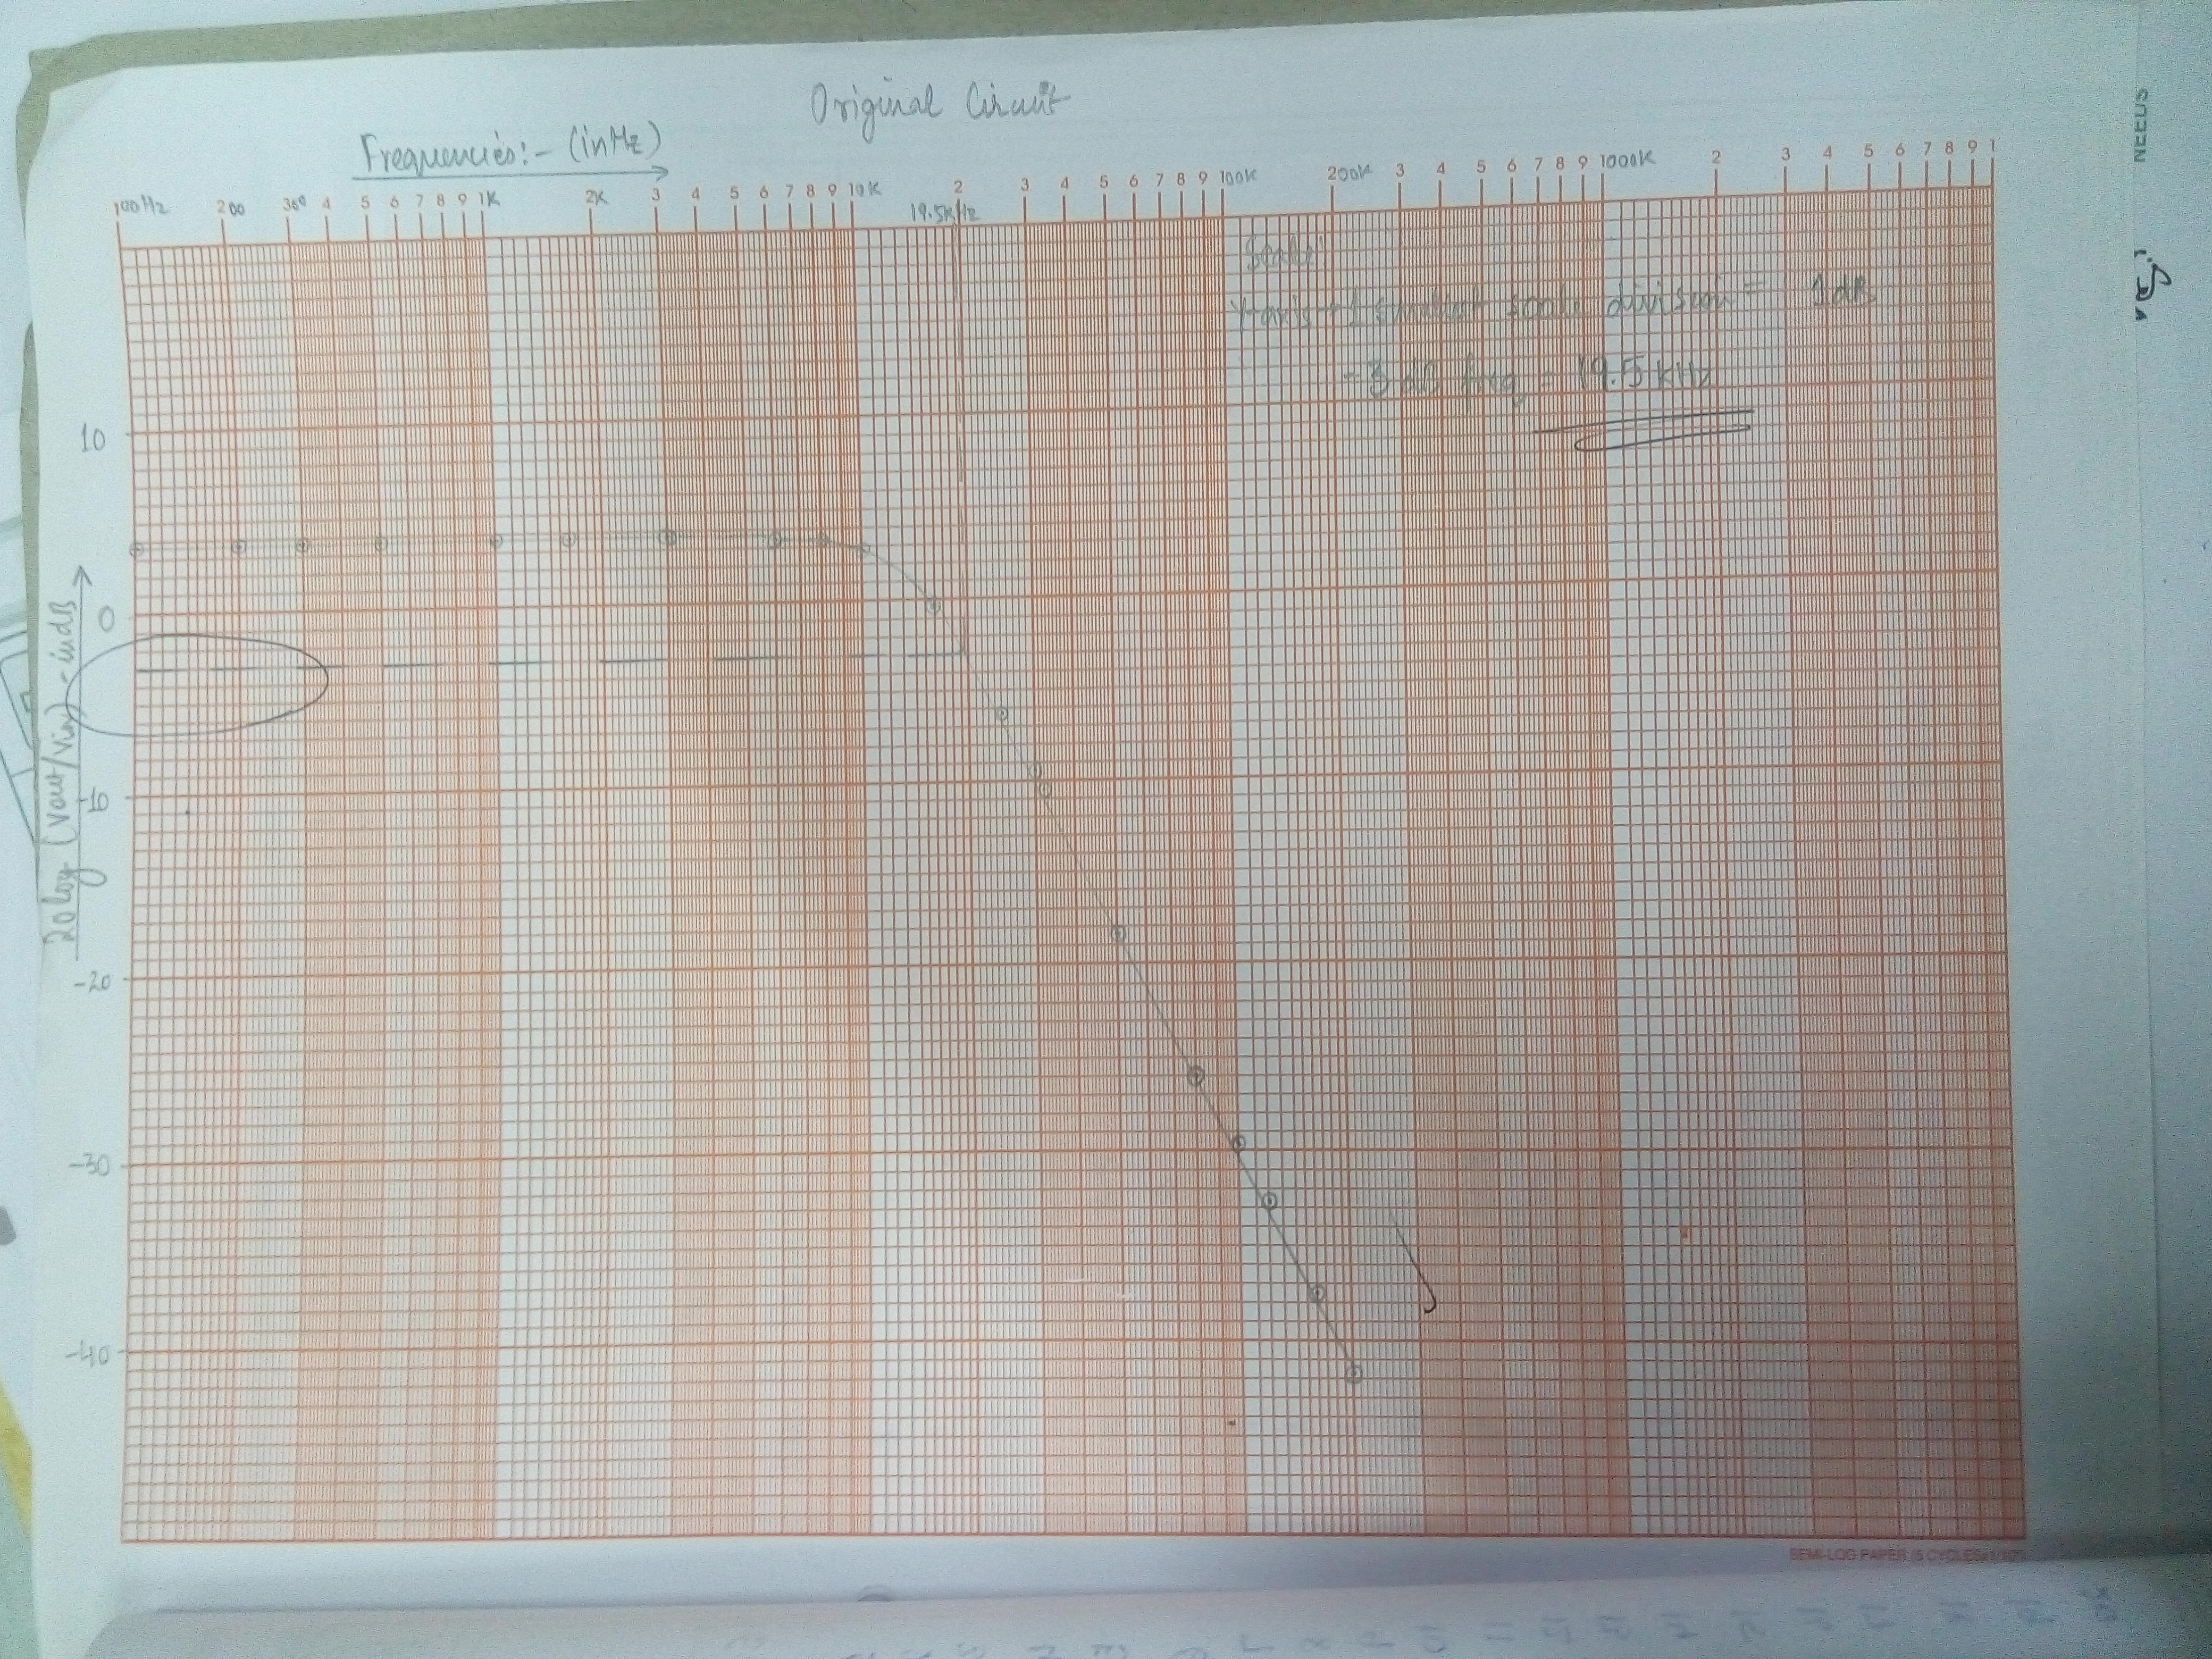 Original Circuit
Frequencies:- (in Hz)
NEEUS
100Hz 200 300 4 5 6 7 8 9 1K 2K 3 4 5 6 7 8 9 10K 2 3 4 5 6 7 8 9 100K 200K 3 4 5 6 7 8 9 1000K 2 3 4 5 6 7 8 9 1
19.5KHz
Scale:
Y-axis → 1 smallest scale division = 1dB
-3 dB freq = 19.5 kHz
10
0
-10
-20
-30
-40
20log (Vout/Vin) - in dB